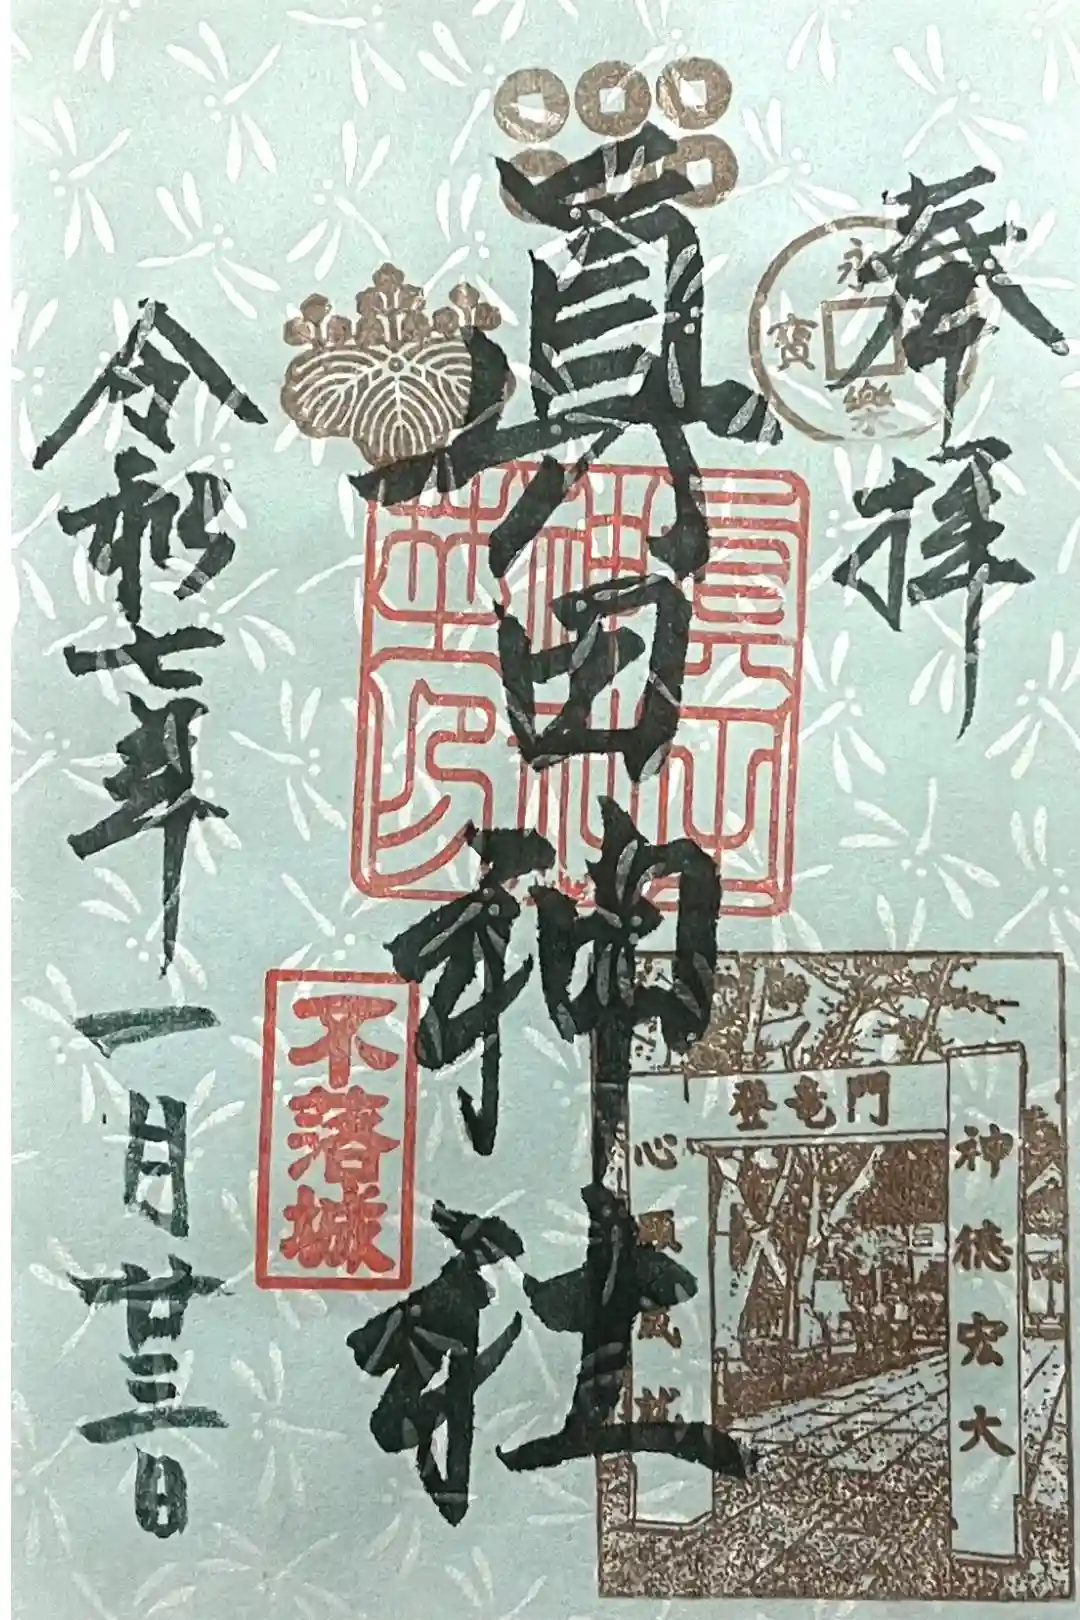 奉拝
永樂
寳
眞田神社
眞田神社之印
登竜門
神徳宏大
心願成就
不落城
令和七年一月廿三日